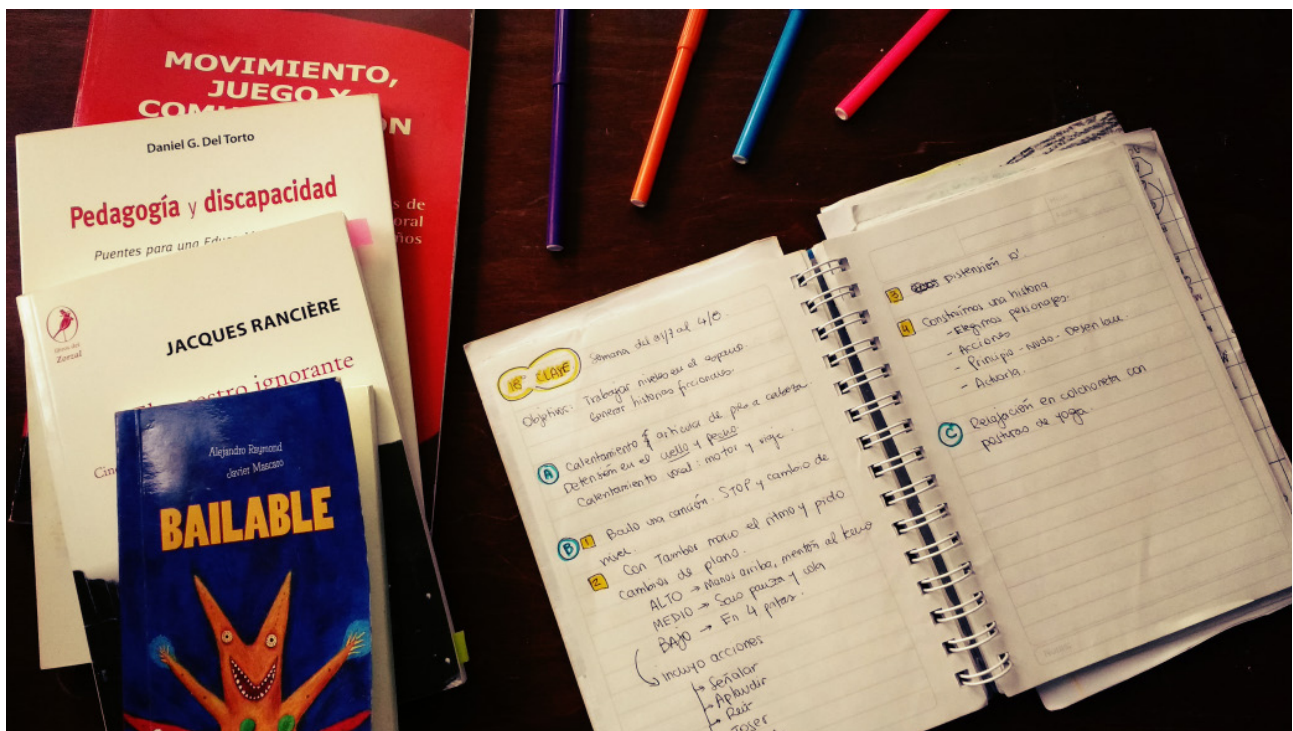 MOVIMIENTO,
JUEGO Y
s de
oral
ños
Daniel G. Del Torto
Pedagogía y discapacidad
Puentes para una
libros del
Zorzal
JACQUES RANCIÈRE
ignorante
Alejandro Raymond
Javier Mascaro
BAILABLE
18ª CLASE
Semana del 31/7 al 4/8
Objetivos: Trabajar niveles en el espacio.
Generar historias ficcionales.
A Calentamiento articular de pies a cabeza
Detensión en el cuello y pecho
Calentamiento vocal: motor y viaje.
B 1 Bailo una canción. STOP y cambio de
nivel.
2 Con Tambor marco el ritmo y pido
cambios de plano.
ALTO → Manos arriba, mentón al techo
MEDIO → Saco panza y cola
BAJO → En 4 patas.
Incluyo acciones
→ Señalar
→ Aplaudir
→ Reír
→ Toser
3 Distensión 10'
4 Construimos una historia
- Elegimos personajes.
- Acciones
- Principio - Nudo - Desenlace.
- Actuarla.
C Relajación en colchoneta con
posturas de yoga.